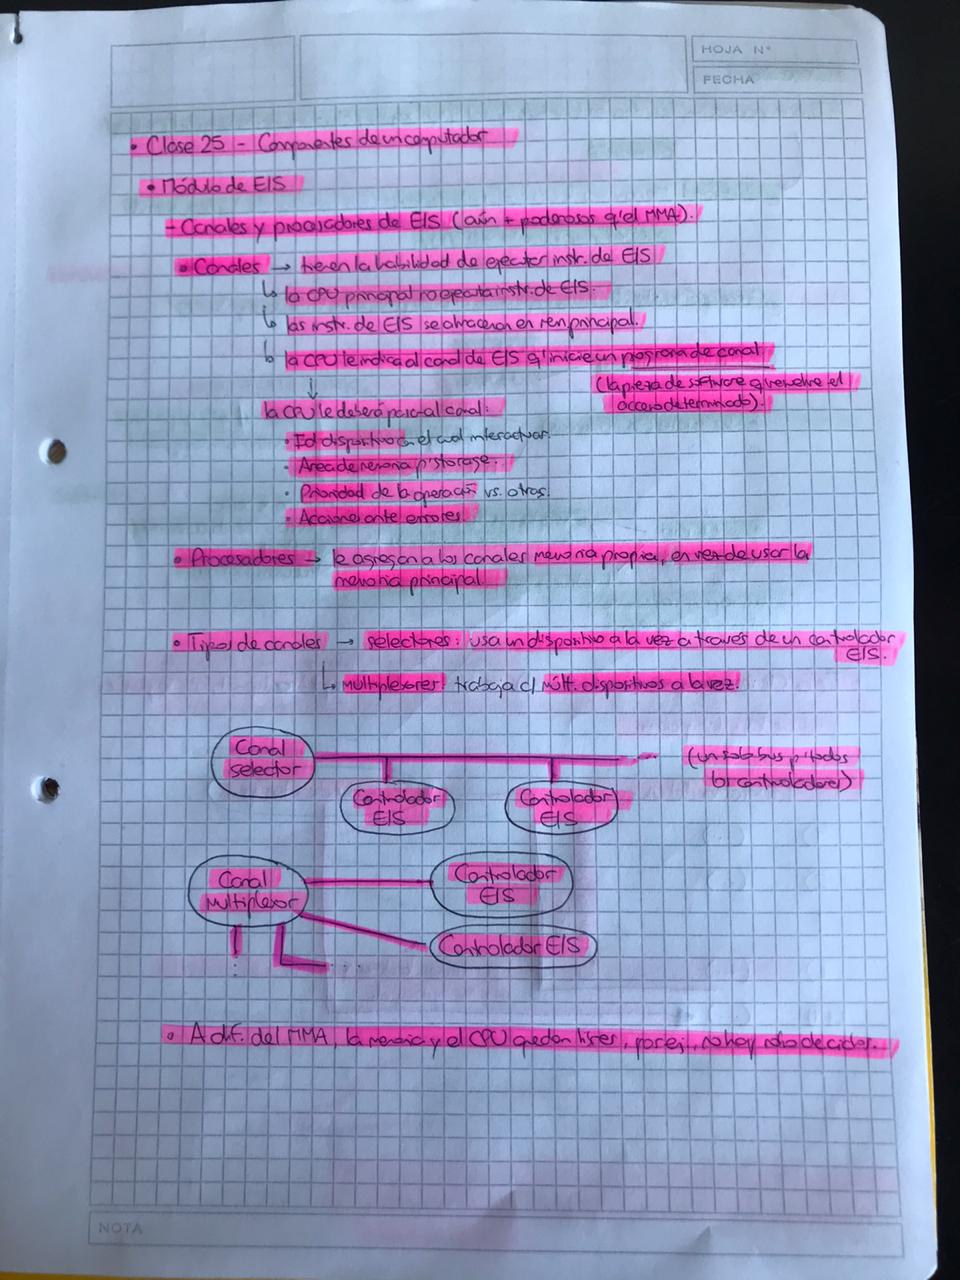 HOJA N°
FECHA
• Clase 25 - Componentes de un computador
• Módulo de E/S
- Canales y procesadores de E/S (aún + poderosos q' el MMA).
• Canales → tienen la habilidad de ejecutar instr. de E/S
↳ la CPU principal no ejecuta instr. de E/S.
↳ las instr. de E/S se almacenan en mem principal.
↳ la CPU le indica al canal de E/S q' inicie un programa de canal
(la pieza de software q' resuelve el
acceso determinado).
↓
la CPU le deberá pasar al canal:
• Id dispositivo con el cual interactuar.
• Area de memoria p' storage.
• Prioridad de la operación vs. otros.
• Acciones ante errores.
• Procesadores → le agregan a los canales memoria propia, en vez de usar la
memoria principal.
• Tipos de canales → selectores: usa un dispositivo a la vez a través de un controlador
E/S.
↳ multiplexores: trabaja c/ múlt. dispositivos a la vez.
Canal
selector
(un solo bus p' todos
los controladores)
Controlador
E/S
Controlador
E/S
Canal
Multiplexor
Controlador
E/S
Controlador E/S
• A dif. del MMA, la memoria y el CPU quedan libres, por ej, no hay robo de ciclos.
NOTA